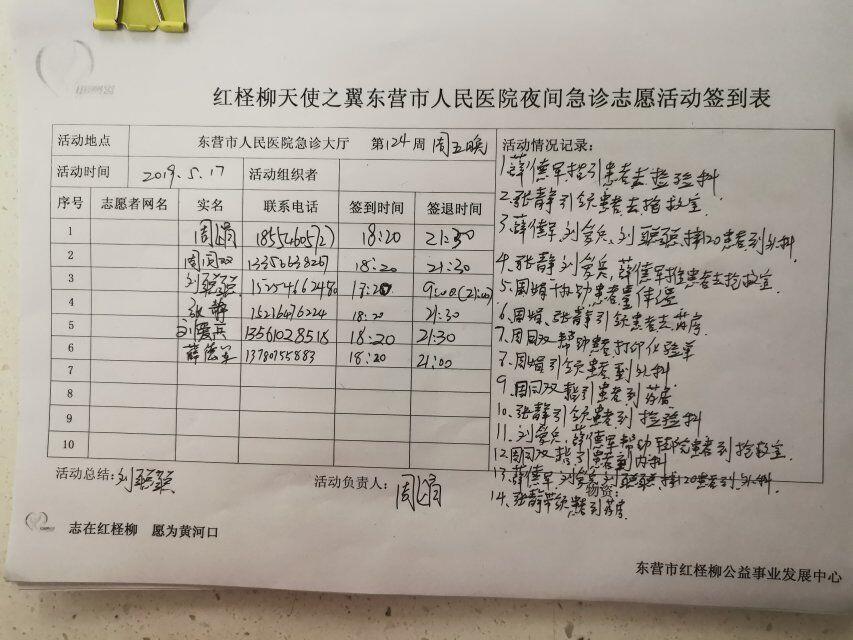 红柽柳天使之翼东营市人民医院夜间急诊志愿活动签到表
活动地点 东营市人民医院急诊大厅 第124周 周五晚
活动时间 2019.5.17 活动组织者
序号 志愿者网名 实名 联系电话 签到时间 签退时间
1 周娟 18:20 21:30
2 周同双 18:20 21:30
3 刘聪聪 15254662480
4 张静 15216476224 18:20 21:30
5 刘爱兵 13561028518 18:20 21:30
6 薛德军 13780755883 18:20 21:00
7
8
9
10
活动总结: 刘聪聪
活动负责人: 周娟
活动情况记录:
1、薛德军指引患者去检验科
2、张静引领患者去抢救室
3、薛德军、刘爱兵、刘聪聪接120患者到外科
4、张静、刘爱兵、薛德军推患者去抢救室
5、周娟协助患者量体温
6、周娟、张静引领患者去药房
7、周同双帮助患者打印化验单
8、周娟引领患者到外科
9、周同双指引患者到药房
10、张静引领患者到检验科
11、刘爱兵、薛德军帮助转院患者到抢救室
12、周同双指引患者到内科
13、薛德军、刘爱兵、刘聪聪接120患者到外科
物资:
14、张静带领患者到药房
志在红柽柳 愿为黄河口
东营市红柽柳公益事业发展中心